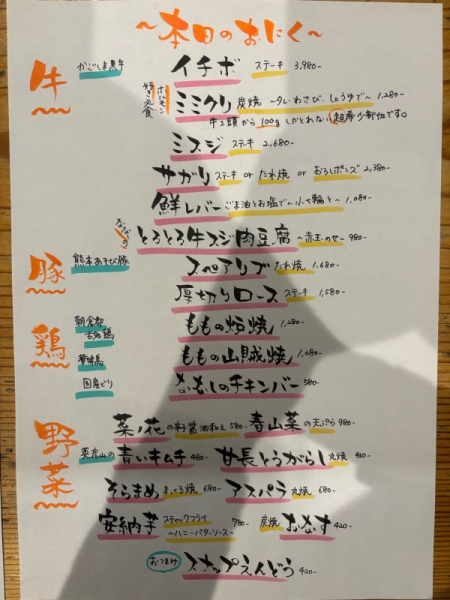 〜本日のおにく〜
牛
かごしま黒牛
イチボ ステーキ 3,980-
ホルモン好き必食
ミミクリ 炭焼 〜タレ・わさび、しょうゆで〜 1,280-
牛1頭から100gしかとれない超希少部位です。
ミスジ ステーキ 2,680-
サガリ ステーキ or たれ焼 or おろしポンズ 2,380-
鮮レバー ごま油とお塩で〜小ネギ輪と〜 1,080-
とろとろ牛スジ肉豆腐 〜赤玉のせ〜 980-
豚
熊本あそび豚
スペアリブ たれ焼 1,680-
厚切りロース ステーキ 1,580-
鶏
朝倉郡古処鶏
ももの炉焼 1,280-
華味鳥
ももの山賊焼 1,080-
国産どり
なむしのチキンバー 580-
野菜
菜ノ花の辛子醤油和え 580-
春山菜の天ぷら 980-
英彦山の青いキムチ 480-
甘長とうがらし 丸焼 480-
そらまめ まっくろ焼 680-
アスパラ 丸焼 680-
安納芋 スティックフライ 〜ハニーバターソース〜 780-
炭焼 おなす 420-
おつまみ スナップえんどう 420-